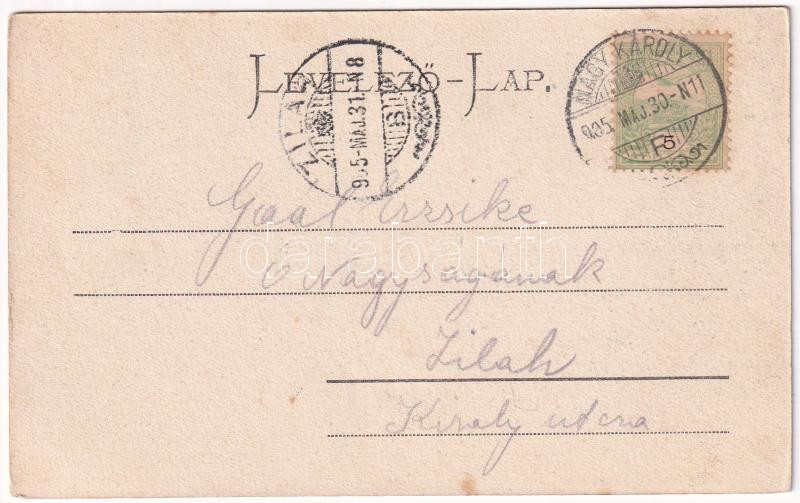 LEVELEZŐ-LAP.
ZILAH
905-MÁJ.31.-N8
NAGY KÁROLY
905 MÁJ.30-N11
5
Gaal Erzsike
Ő Nagyságának
Zilah
Király utcza
darabanth